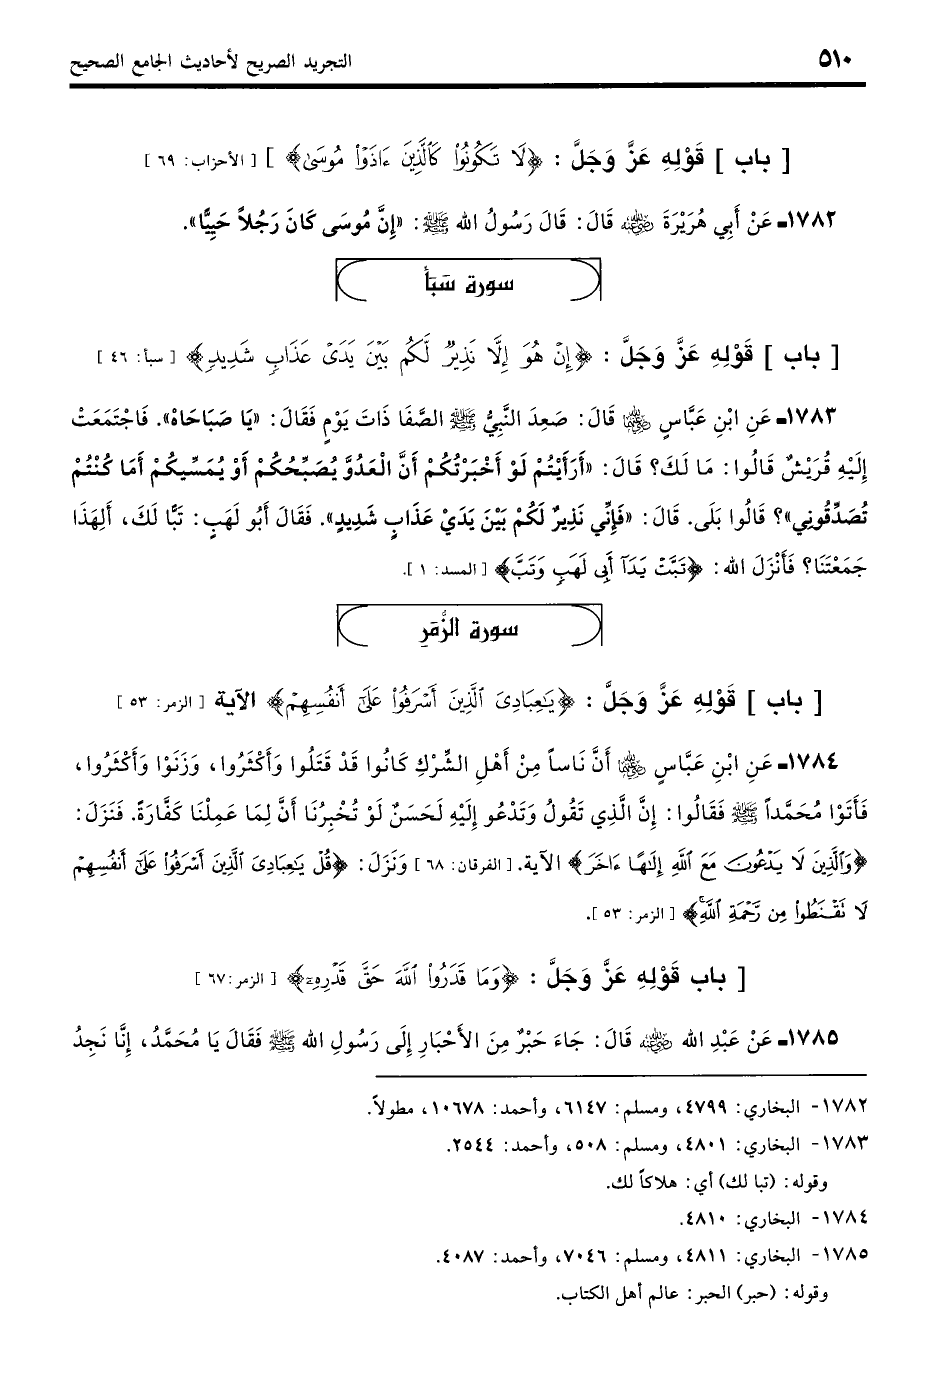 ٥١٠ التجريد الصريح لأحاديث الجامع الصحيح
[ باب ] قَوْلِهِ عَزَّ وَجَلَّ : ﴿لَا تَكُونُوا۟ كَٱلَّذِينَ ءَاذَوْا۟ مُوسَىٰ﴾ ] [ الأحزاب: ٦٩ ]
١٧٨٢ـ عَنْ أَبِي هُرَيْرَةَ رضي الله عنه قَالَ: قَالَ رَسُولُ الله ﷺ: «إِنَّ مُوسَى كَانَ رَجُلاً حَيِيًّا».
سورة سَبَأ
[ باب ] قَوْلِهِ عَزَّ وَجَلَّ : ﴿إِنْ هُوَ إِلَّا نَذِيرٌ لَّكُم بَيْنَ يَدَىْ عَذَابٍ شَدِيدٍ﴾ [ سبأ: ٤٦ ]
١٧٨٣ـ عَنِ ابْنِ عَبَّاسٍ رضي الله عنهما قَالَ: صَعِدَ النَّبِيُّ ﷺ الصَّفَا ذَاتَ يَوْمٍ فَقَالَ: «يَا صَبَاحَاهْ». فَاجْتَمَعَتْ
إِلَيْهِ قُرَيْشٌ قَالُوا: مَا لَكَ؟ قَالَ: «أَرَأَيْتُمْ لَوْ أَخْبَرْتُكُمْ أَنَّ الْعَدُوَّ يُصَبِّحُكُمْ أَوْ يُمَسِّيكُمْ أَمَا كُنْتُمْ
تُصَدِّقُونِي»؟ قَالُوا بَلَى. قَالَ: «فَإِنِّي نَذِيرٌ لَكُمْ بَيْنَ يَدَيْ عَذَابٍ شَدِيدٍ». فَقَالَ أَبُو لَهَبٍ: تَبًّا لَكَ، أَلِهَذَا
جَمَعْتَنَا؟ فَأَنْزَلَ الله: ﴿تَبَّتْ يَدَآ أَبِى لَهَبٍ وَتَبَّ﴾ [ المسد: ١ ].
سورة الزُّمَرِ
[ باب ] قَوْلِهِ عَزَّ وَجَلَّ : ﴿يَـٰعِبَادِىَ ٱلَّذِينَ أَسْرَفُوا۟ عَلَىٰٓ أَنفُسِهِمْ﴾ الآية [ الزمر: ٥٣ ]
١٧٨٤ـ عَنِ ابْنِ عَبَّاسٍ رضي الله عنهما أَنَّ نَاساً مِنْ أَهْلِ الشِّرْكِ كَانُوا قَدْ قَتَلُوا وَأَكْثَرُوا، وَزَنَوْا وَأَكْثَرُوا،
فَأَتَوْا مُحَمَّداً ﷺ فَقَالُوا: إِنَّ الَّذِي تَقُولُ وَتَدْعُو إِلَيْهِ لَحَسَنٌ لَوْ تُخْبِرُنَا أَنَّ لِمَا عَمِلْنَا كَفَّارَةً. فَنَزَلَ:
﴿وَٱلَّذِينَ لَا يَدْعُونَ مَعَ ٱللَّهِ إِلَـٰهًا ءَاخَرَ﴾ الآية. [ الفرقان: ٦٨ ] وَنَزَلَ: ﴿قُلْ يَـٰعِبَادِىَ ٱلَّذِينَ أَسْرَفُوا۟ عَلَىٰٓ أَنفُسِهِمْ
لَا تَقْنَطُوا۟ مِن رَّحْمَةِ ٱللَّهِ﴾ [ الزمر: ٥٣ ].
[ باب قَوْلِهِ عَزَّ وَجَلَّ : ﴿وَمَا قَدَرُوا۟ ٱللَّهَ حَقَّ قَدْرِهِۦ﴾ [ الزمر: ٦٧ ]
١٧٨٥ـ عَنْ عَبْدِ الله رضي الله عنه قَالَ: جَاءَ حَبْرٌ مِنَ الأَحْبَارِ إِلَى رَسُولِ الله ﷺ فَقَالَ يَا مُحَمَّدُ، إِنَّا نَجِدُ
١٧٨٢- البخاري: ٤٧٩٩، ومسلم: ٦١٤٧، وأحمد: ١٠٦٧٨، مطولاً.
١٧٨٣- البخاري: ٤٨٠١، ومسلم: ٥٠٨، وأحمد: ٢٥٤٤.
وقوله: (تبا لك) أي: هلاكاً لك.
١٧٨٤- البخاري: ٤٨١٠.
١٧٨٥- البخاري: ٤٨١١، ومسلم: ٧٠٤٦، وأحمد: ٤٠٨٧.
وقوله: (حبر) الحبر: عالم أهل الكتاب.